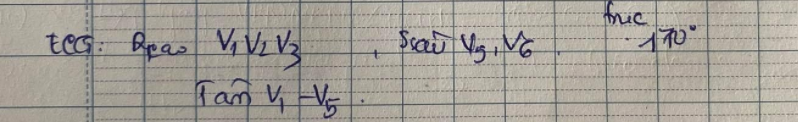 ECG: Rpao V1 V2 V3, Ssâu V5, V6. trục -170°
Tần V1 - V5.